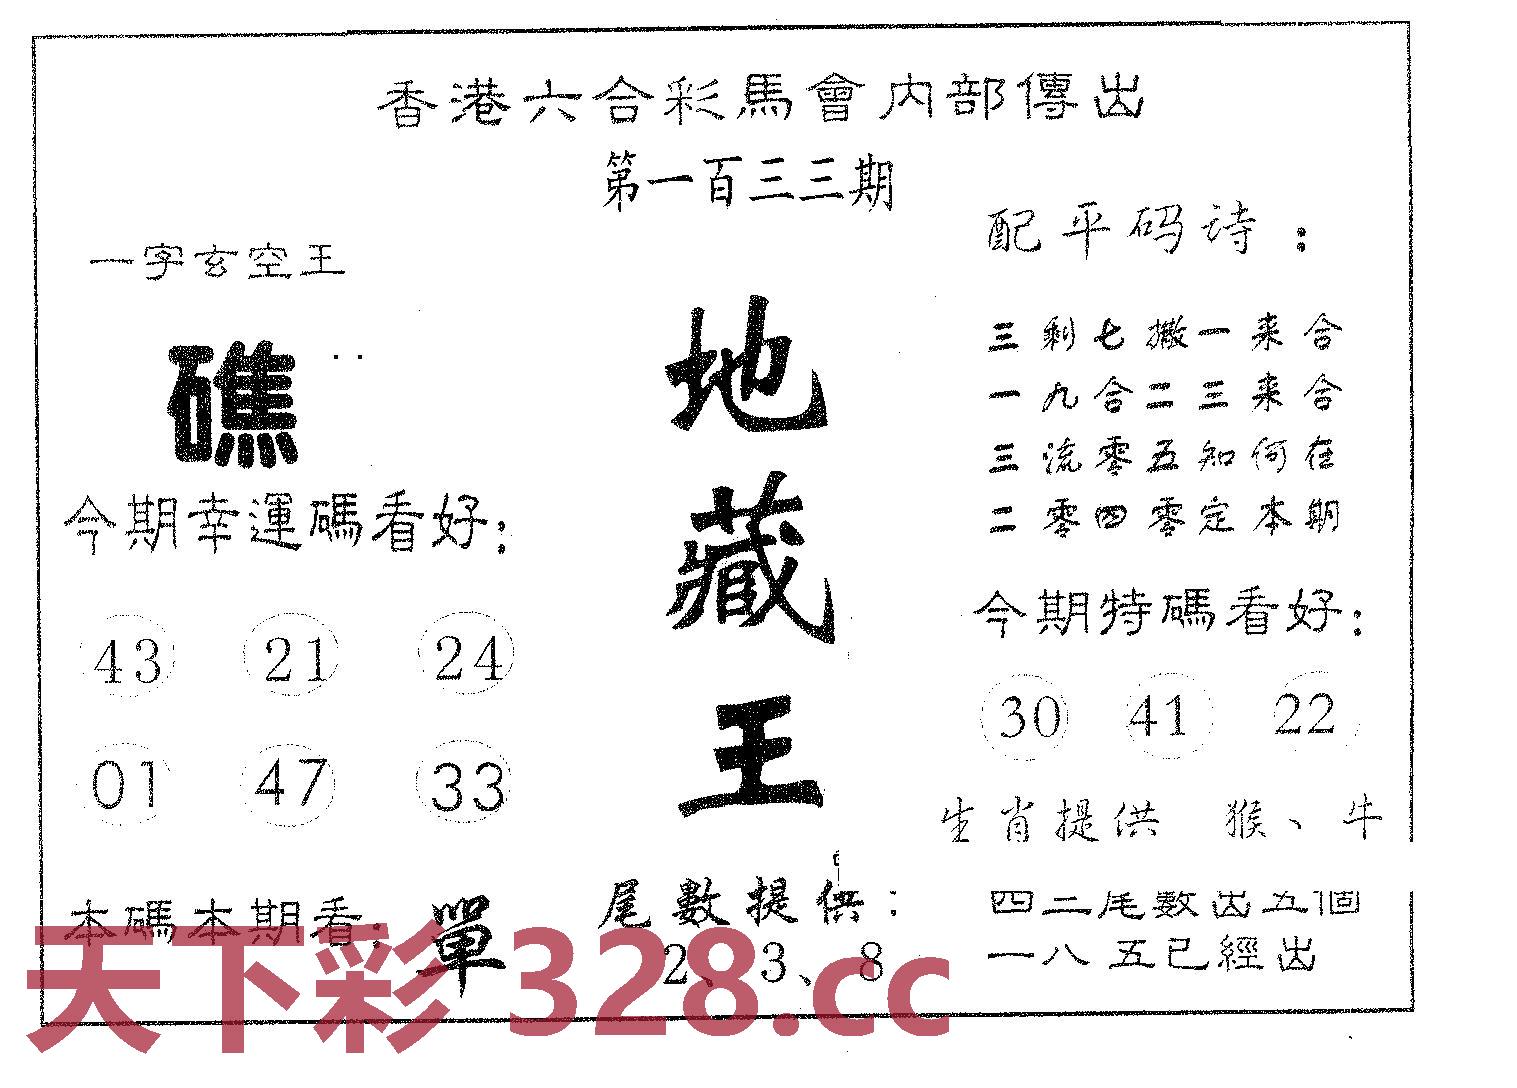 香港六合彩馬會内部傳出
第一百三三期
一字玄空王
礁
今期幸運碼看好:
43 21 24
01 47 33
本碼本期看: 單
地藏王
尾數提供:
2、3、8
配平码诗:
三剩七撒一来合
一九合二三来合
三流零五知何在
二零四零定本期
今期特碼看好:
30 41 22
生肖提供 猴、牛
四二尾數出五個
一八五已經出
天下彩 328.cc